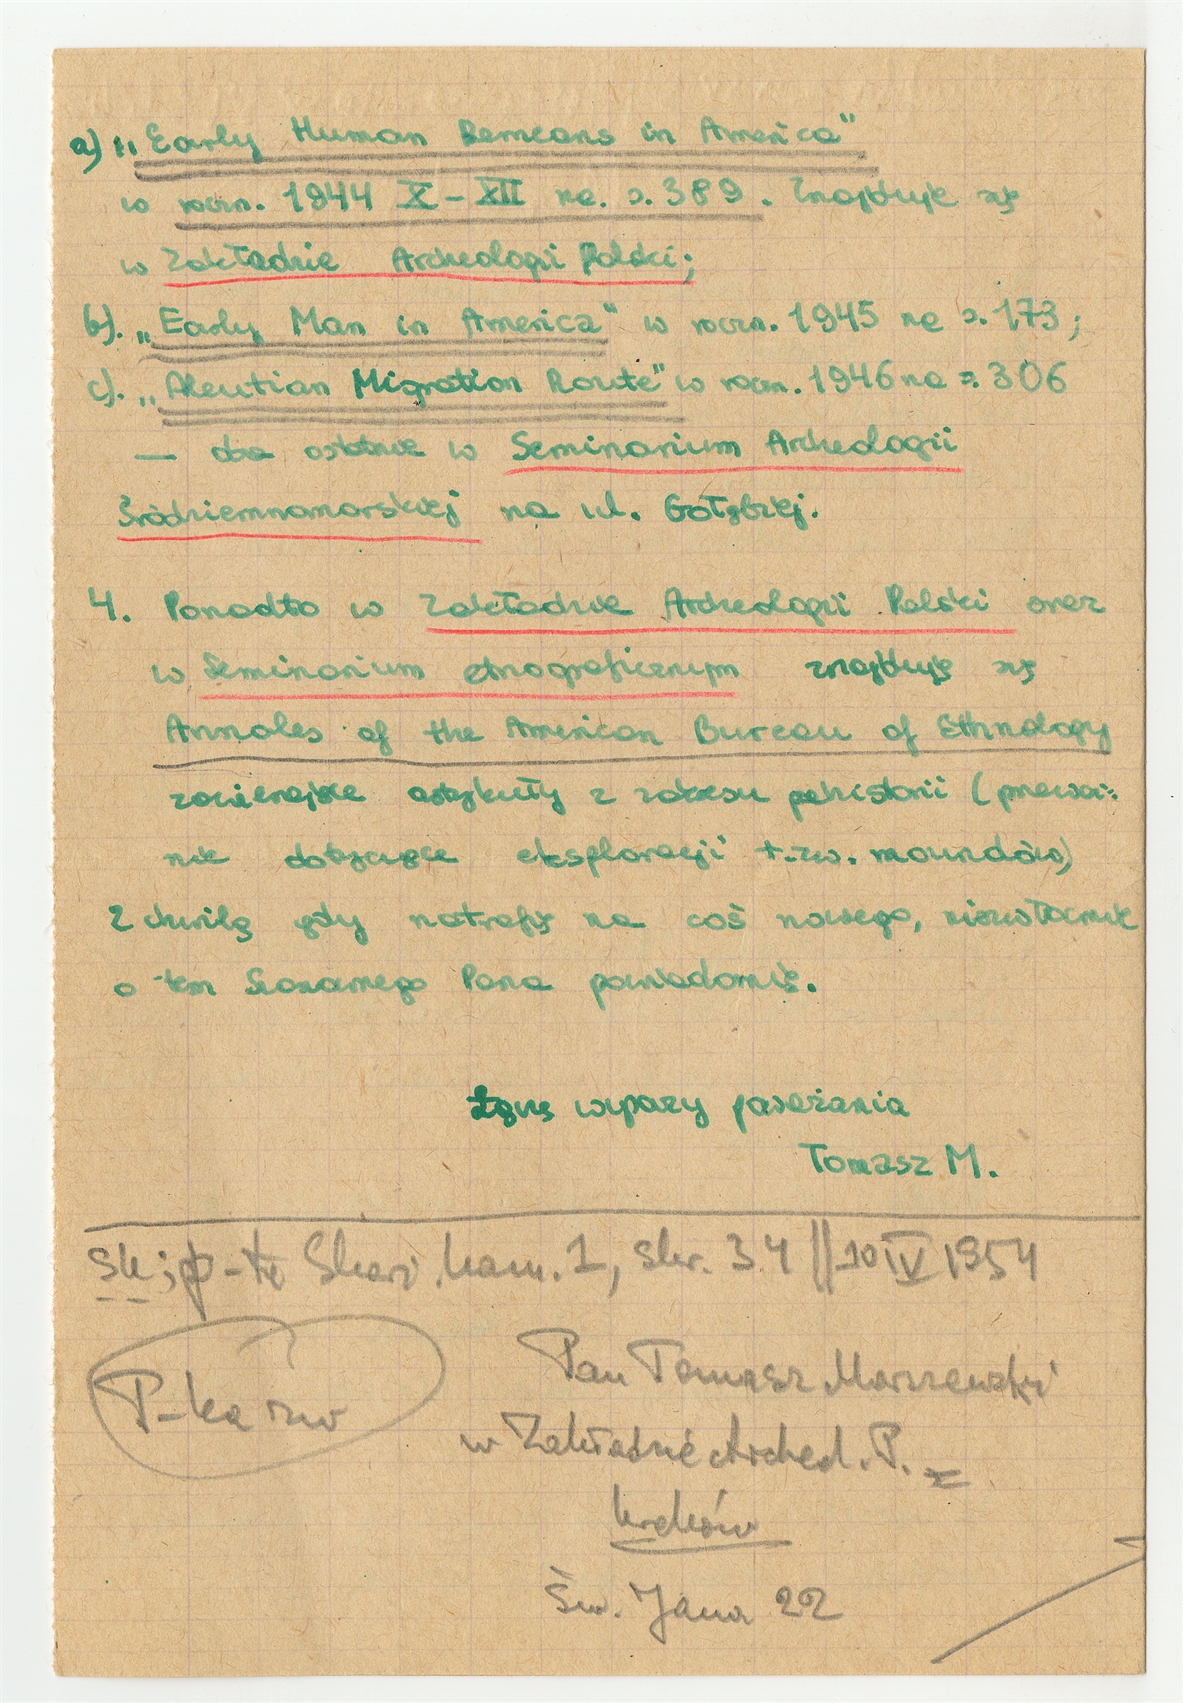 a) „Early Human Remeans in America"
w roczn. 1944 X – XII na. s. 389. Znajduje się
w Zakładzie Archeologii Polski;
b). „Early Man in America" w roczn. 1945 na s. 173;
c). „Aleutian Migration Route" w roczn. 1946 na s. 306
— dwa ostatnie w Seminarium Archeologii
Śródziemnomorskiej na ul. Gołębiej.
4. Ponadto w Zakładzie Archeologii Polski oraz
w Seminarium etnograficznym znajduję się
Annales of the American Bureau of Ethnology
zawierające artykuły z zakresu prehistorii (przeważ-
nie dotyczące eksploracji t.zw. moundów)
Z chwilą gdy natrafię na coś nowego, niezwłocznie
o tem Szanownego Pana powiadomię.
Łączę wyrazy poważania
Tomasz M.
Skarż. kam. 1, skr. 34 || 10 IV 1954
Pan Tomasz Marszewski
w Zakładzie Archeol. P.
P-ka
Kraków
Św. Jana 22